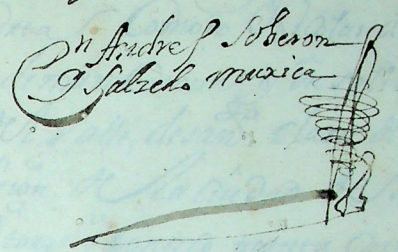 Dn Andres Soberon
y Salzedo muxica